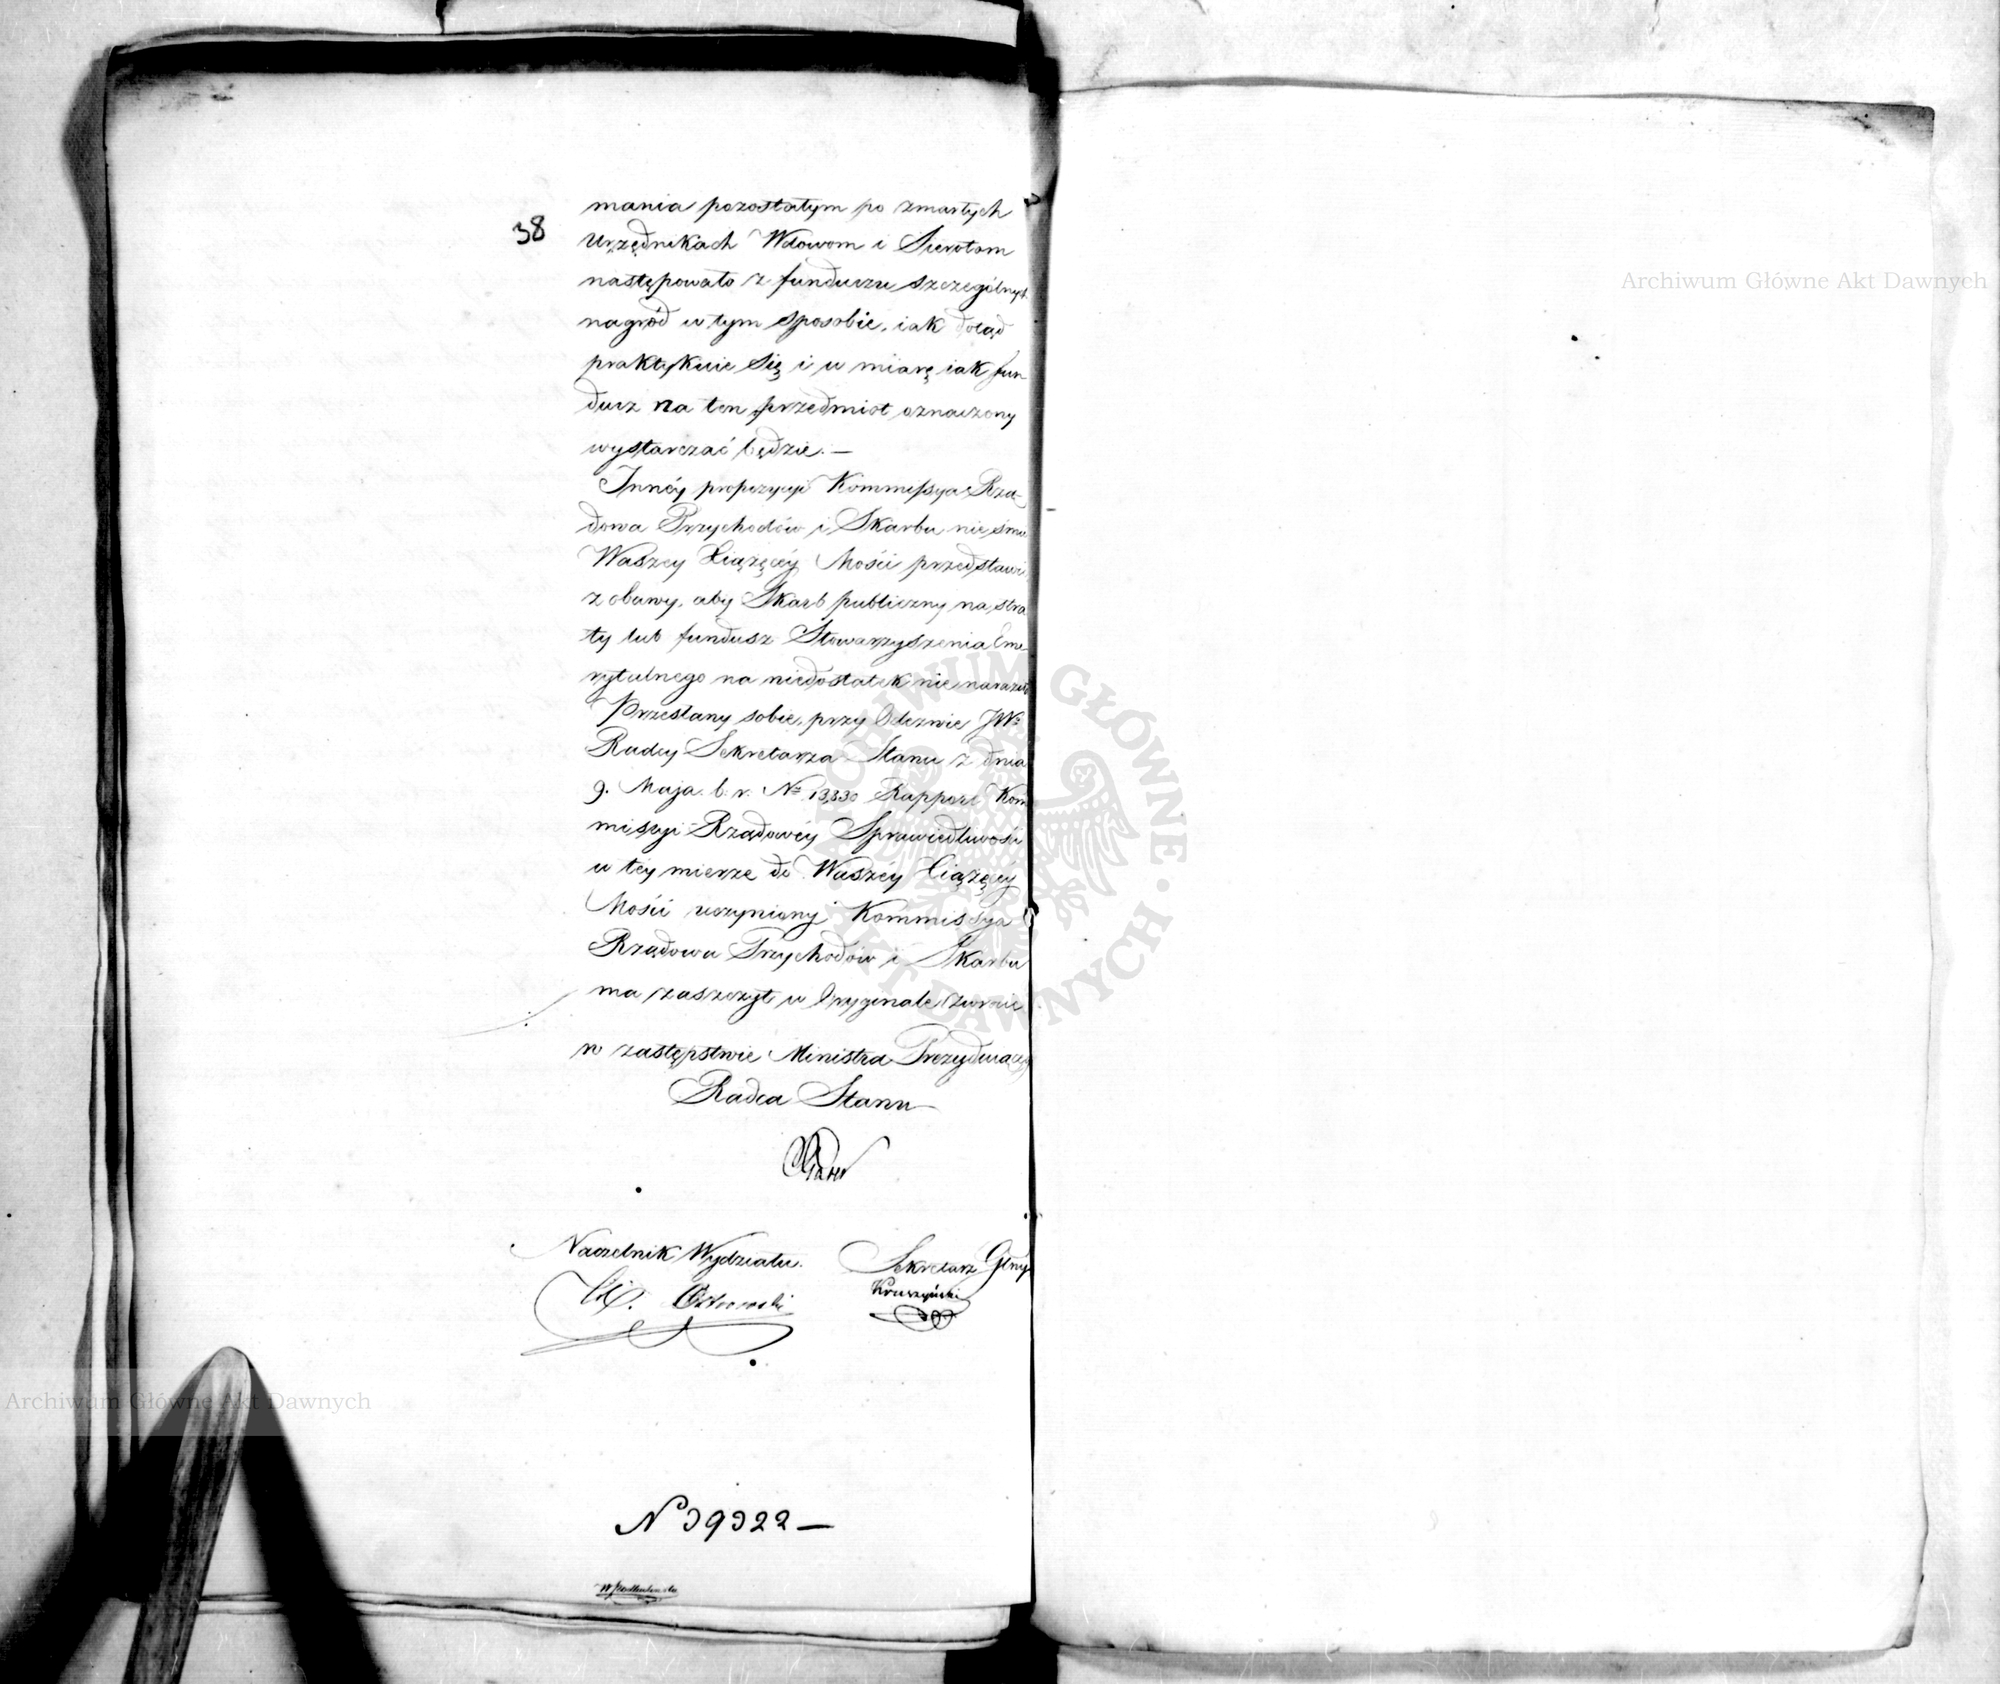 38
mania pozostałym po zmarłych
Urzędnikach Wdowom i Sierotom
następowało z funduszu szczególnych
nagród w tym sposobie, iak dotąd
praktykuie się i w miarę iak fun
dusz na ten przedmiot oznaczony
wystarczać będzie. —
Innéy propozycyi Kommissya Rzą-
dowa Przychodów i Skarbu nie śmie
Waszey Xiążęcéy Mości przedstawić
z obawy, aby Skarb publiczny na stra
ty lub fundusz Stowarzyszenia Eme
rytalnego na niedostatek nie narazić
Przesłany sobie, przy Odezwie JWo
Radcy Sekretarza Stanu z dnia
9. Maja b. r. No 13,830 Rapport Kom
missyi Rządowéy Sprawiedliwości
w tey mierze do Waszéy Xiążęcéy
Mości uczyniony Kommissya
Rządowa Przychodów i Skarbu
ma zaszczyt w Oryginale zwrócić
w zastępstwie Ministra Prezyduiącego
Radca Stanu
Naczelnik Wydziału.
Sekretarz Glny
Ostrowski
Kruszyński
N 39322 —
Archiwum Główne Akt Dawnych
Archiwum Główne Akt Dawnych
ARCHIWUM GŁÓWNE AKT DAWNYCH